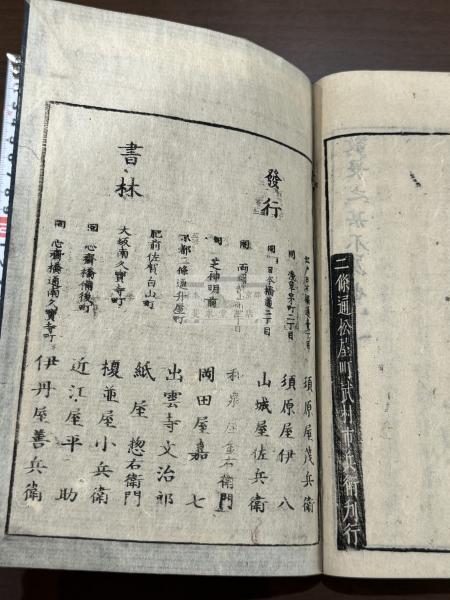 二條通松屋町武村市兵衛刊行
發行
書林
江戸日本橋通壱丁目 須原屋茂兵衛
同 浅草茅町二丁目 須原屋伊八
同 日本橋通二丁目 山城屋佐兵衛
同 両國 和泉屋金右衛門
同 芝神明前 岡田屋嘉七
京都二條通升屋町 出雲寺文治郎
肥前佐賀白山町 紙屋惣右衛門
大坂南久寶寺町 榎並屋小兵衛
同 心齋橋備後町 近江屋平助
同 心齋橋通南久寶寺町 伊丹屋善兵衛